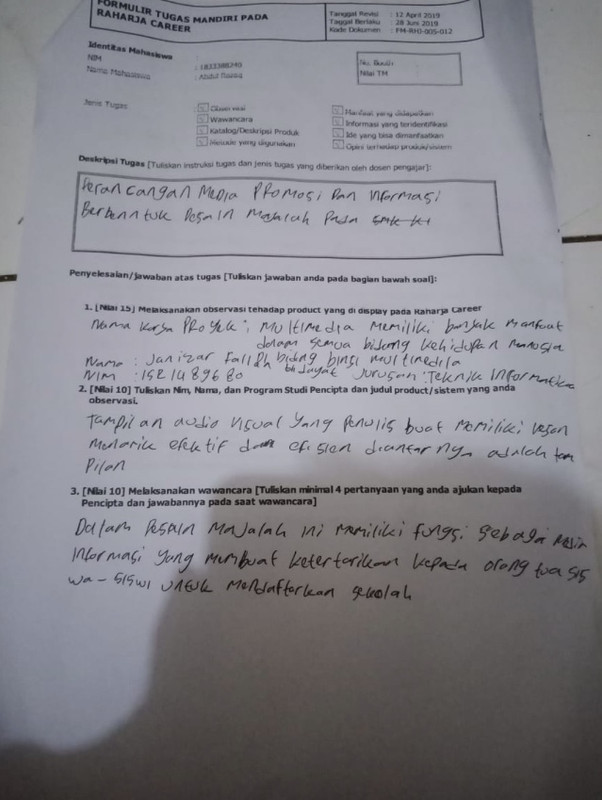 FORMULIR TUGAS MANDIRI PADA
RAHARJA CAREER
Tanggal Revisi : 12 April 2019
Tanggal Berlaku : 28 Juni 2019
Kode Dokumen : FM-RHJ-005-012
Identitas Mahasiswa
NIM : 1833388293
Nama Mahasiswa : Abdul
No. Booth
Nilai TM
Jenis Tugas :
Observasi
Wawancara
Katalog/Deskripsi Produk
Metode yang digunakan
Manfaat yang didapatkan
Informasi yang teridentifikasi
Ide yang bisa dimanfaatkan
Opini terhadap produk/sistem
Deskripsi Tugas [Tuliskan instruksi tugas dan jenis tugas yang diberikan oleh dosen pengajar]:
Perancangan Media Promosi Dan Informasi
Berbenntuk Desain Majalah Pada
Penyelesaian/jawaban atas tugas [Tuliskan jawaban anda pada bagian bawah soal]:
1. [Nilai 15] Melaksanakan observasi tehadap product yang di display pada Raharja Career
Nama karya Proyek : Multimedia Memiliki banyak Manfaat
dalam semua bidang kehidupan manusia
Nama : Janizar Fallah bidang multimedia
NIM : Jurusan : Teknik Informatika
2. [Nilai 10] Tuliskan Nim, Nama, dan Program Studi Pencipta dan judul product/sistem yang anda
observasi.
Tampilan audio visual yang Penulis buat Memiliki kesan
Menarik efektif dan efisien diantaranya adalah tam
Pilan
3. [Nilai 10] Melaksanakan wawancara [Tuliskan minimal 4 pertanyaan yang anda ajukan kepada
Pencipta dan jawabannya pada saat wawancara]
Dalam Desain Majalah ini Memiliki fungsi sebagai
Informasi yang Membuat ketertarikan kepada orang tua sis
wa-siswi untuk Mendaftarkan sekolah